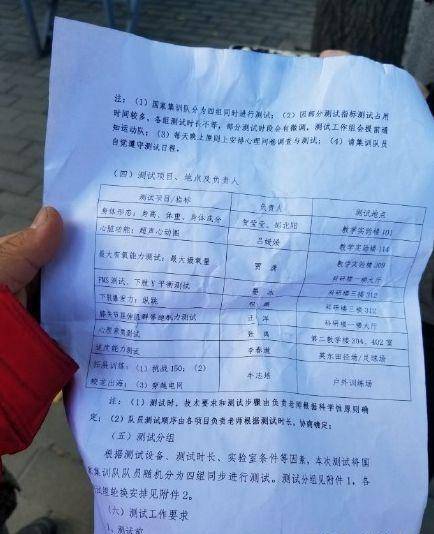 注：（1）国家集训队分为四组同时进行测试；（2）因部分测试指标测试占用
时间较多，各组测试时长不等，部分测试时段会有微调，测试工作组会提前通
知运动队；（3）每天晚上原则上安排心理问卷调查与测试；（4）请集训队员
自觉遵守测试日程。
（四）测试项目、地点及负责人
测试项目/指标 负责人 测试地点
身体形态：身高、体重、身体成分 教学实验楼 101
心脏功能：超声心动图 吕媛媛 教学实验楼 114
最大有氧能力测试：最大摄氧量 教学实验楼 309
FMS 测试、下肢 Y 平衡测试 科研楼一楼大厅
下肢爆发力：纵跳 科研楼三楼 312
膝关节屈伸肌群等速肌力测试 汪洋 科研楼三楼 312
心理素质测试 科研楼一楼大厅
速度能力测试 李春雷 第二教学楼 304、402 室
英东田径场/足球场
拓展训练：（1）挑战 150；（2）
蛟龙出海；（3）穿越电网 牛志培 户外训练场
注：（1）测试时，技术要求和测试步骤由负责老师根据科学性原则确
定；（2）队员测试顺序由各项目负责老师根据测试时长，协商确定；
（五）测试分组
根据测试设备、测试时长、实验室条件等因素，本次测试将国
家集训队队员随机分为四组同步进行测试。测试分组见附件 1，各
试组轮换安排见附件 2。
（六）测试工作要求
1、测试前